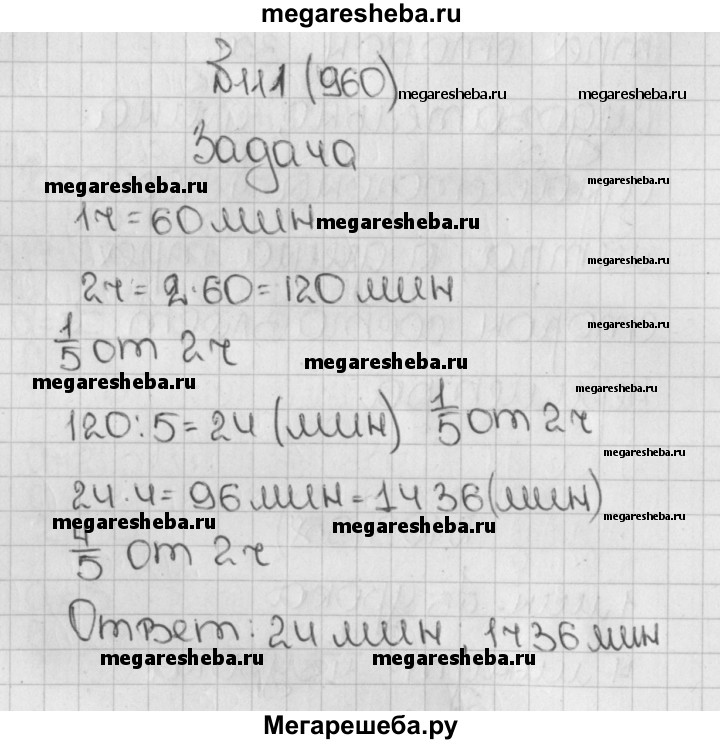 megaresheba.ru
В111 (960) megaresheba.ru megaresheba.ru
Задача
megaresheba.ru megaresheba.ru
1ч = 60 мин megaresheba.ru
megaresheba.ru
2ч = 2·60 = 120 мин
megaresheba.ru
1/5 от 2ч megaresheba.ru
megaresheba.ru megaresheba.ru
120:5 = 24 (мин) 1/5 от 2ч
24·4 = 96 мин = 1ч 36 (мин)
megaresheba.ru megaresheba.ru megaresheba.ru
4/5 от 2ч
Ответ: 24 мин, 1ч 36 мин
megaresheba.ru megaresheba.ru
Мегарешеба.ру